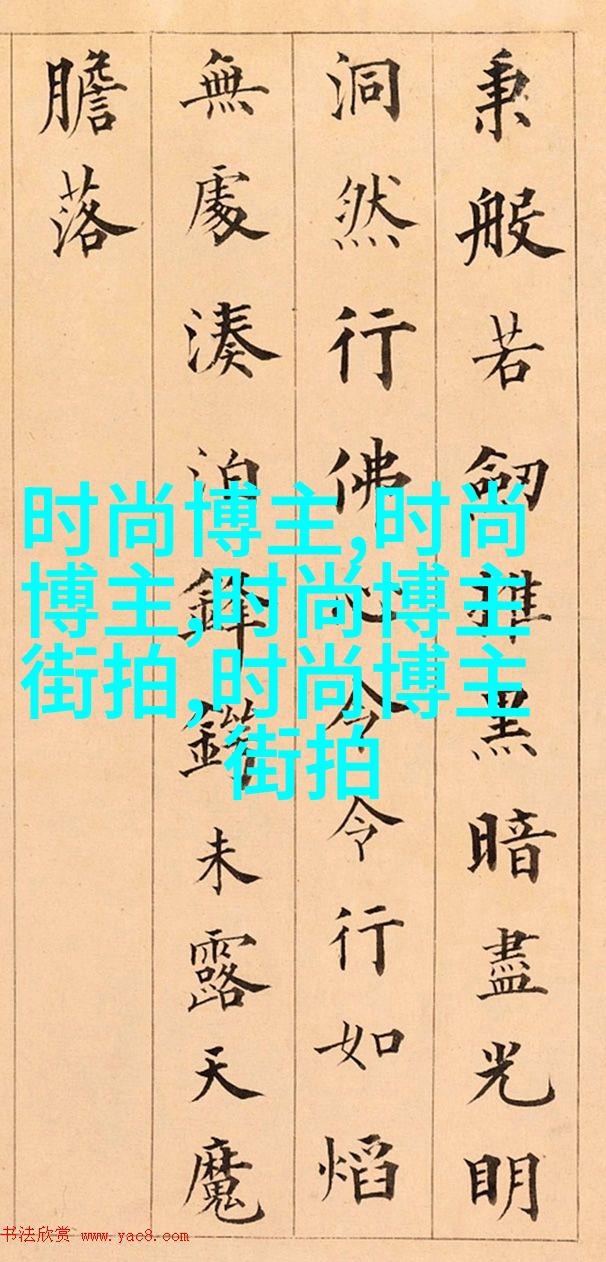 秉般若劒摧黑暗盡光明
洞然行佛心令令行如熖
無處湊泊鋒鍔未露天魔
膽落
时尚博主,时尚
博主,时尚博主
街拍,时尚博主
街拍
书法欣赏 www.yac8.com